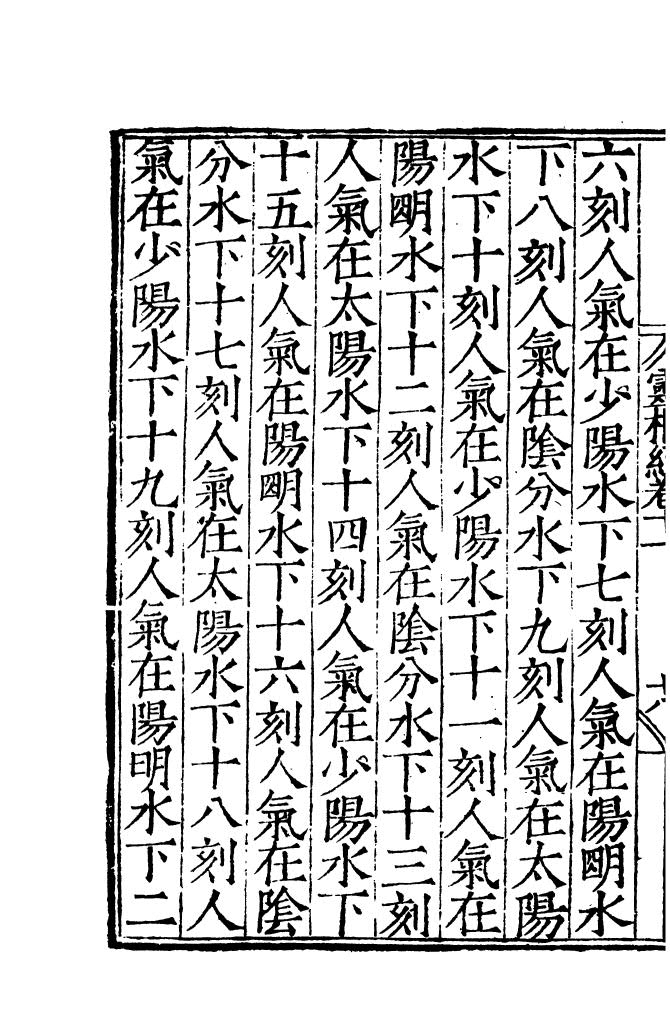 六刻人氣在少陽水下七刻人氣在陽明水
下八刻人氣在陰分水下九刻人氣在太陽
水下十刻人氣在少陽水下十一刻人氣在
陽明水下十二刻人氣在陰分水下十三刻
人氣在太陽水下十四刻人氣在少陽水下
十五刻人氣在陽明水下十六刻人氣在陰
分水下十七刻人氣在太陽水下十八刻人
氣在少陽水下十九刻人氣在陽明水下二